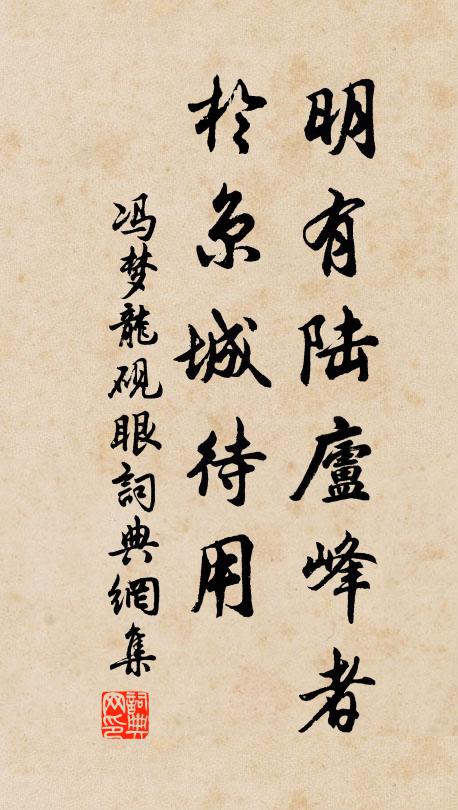 明有陆廬峰者
於京城待用
冯梦龍砚眼詞典網集
詞典网印